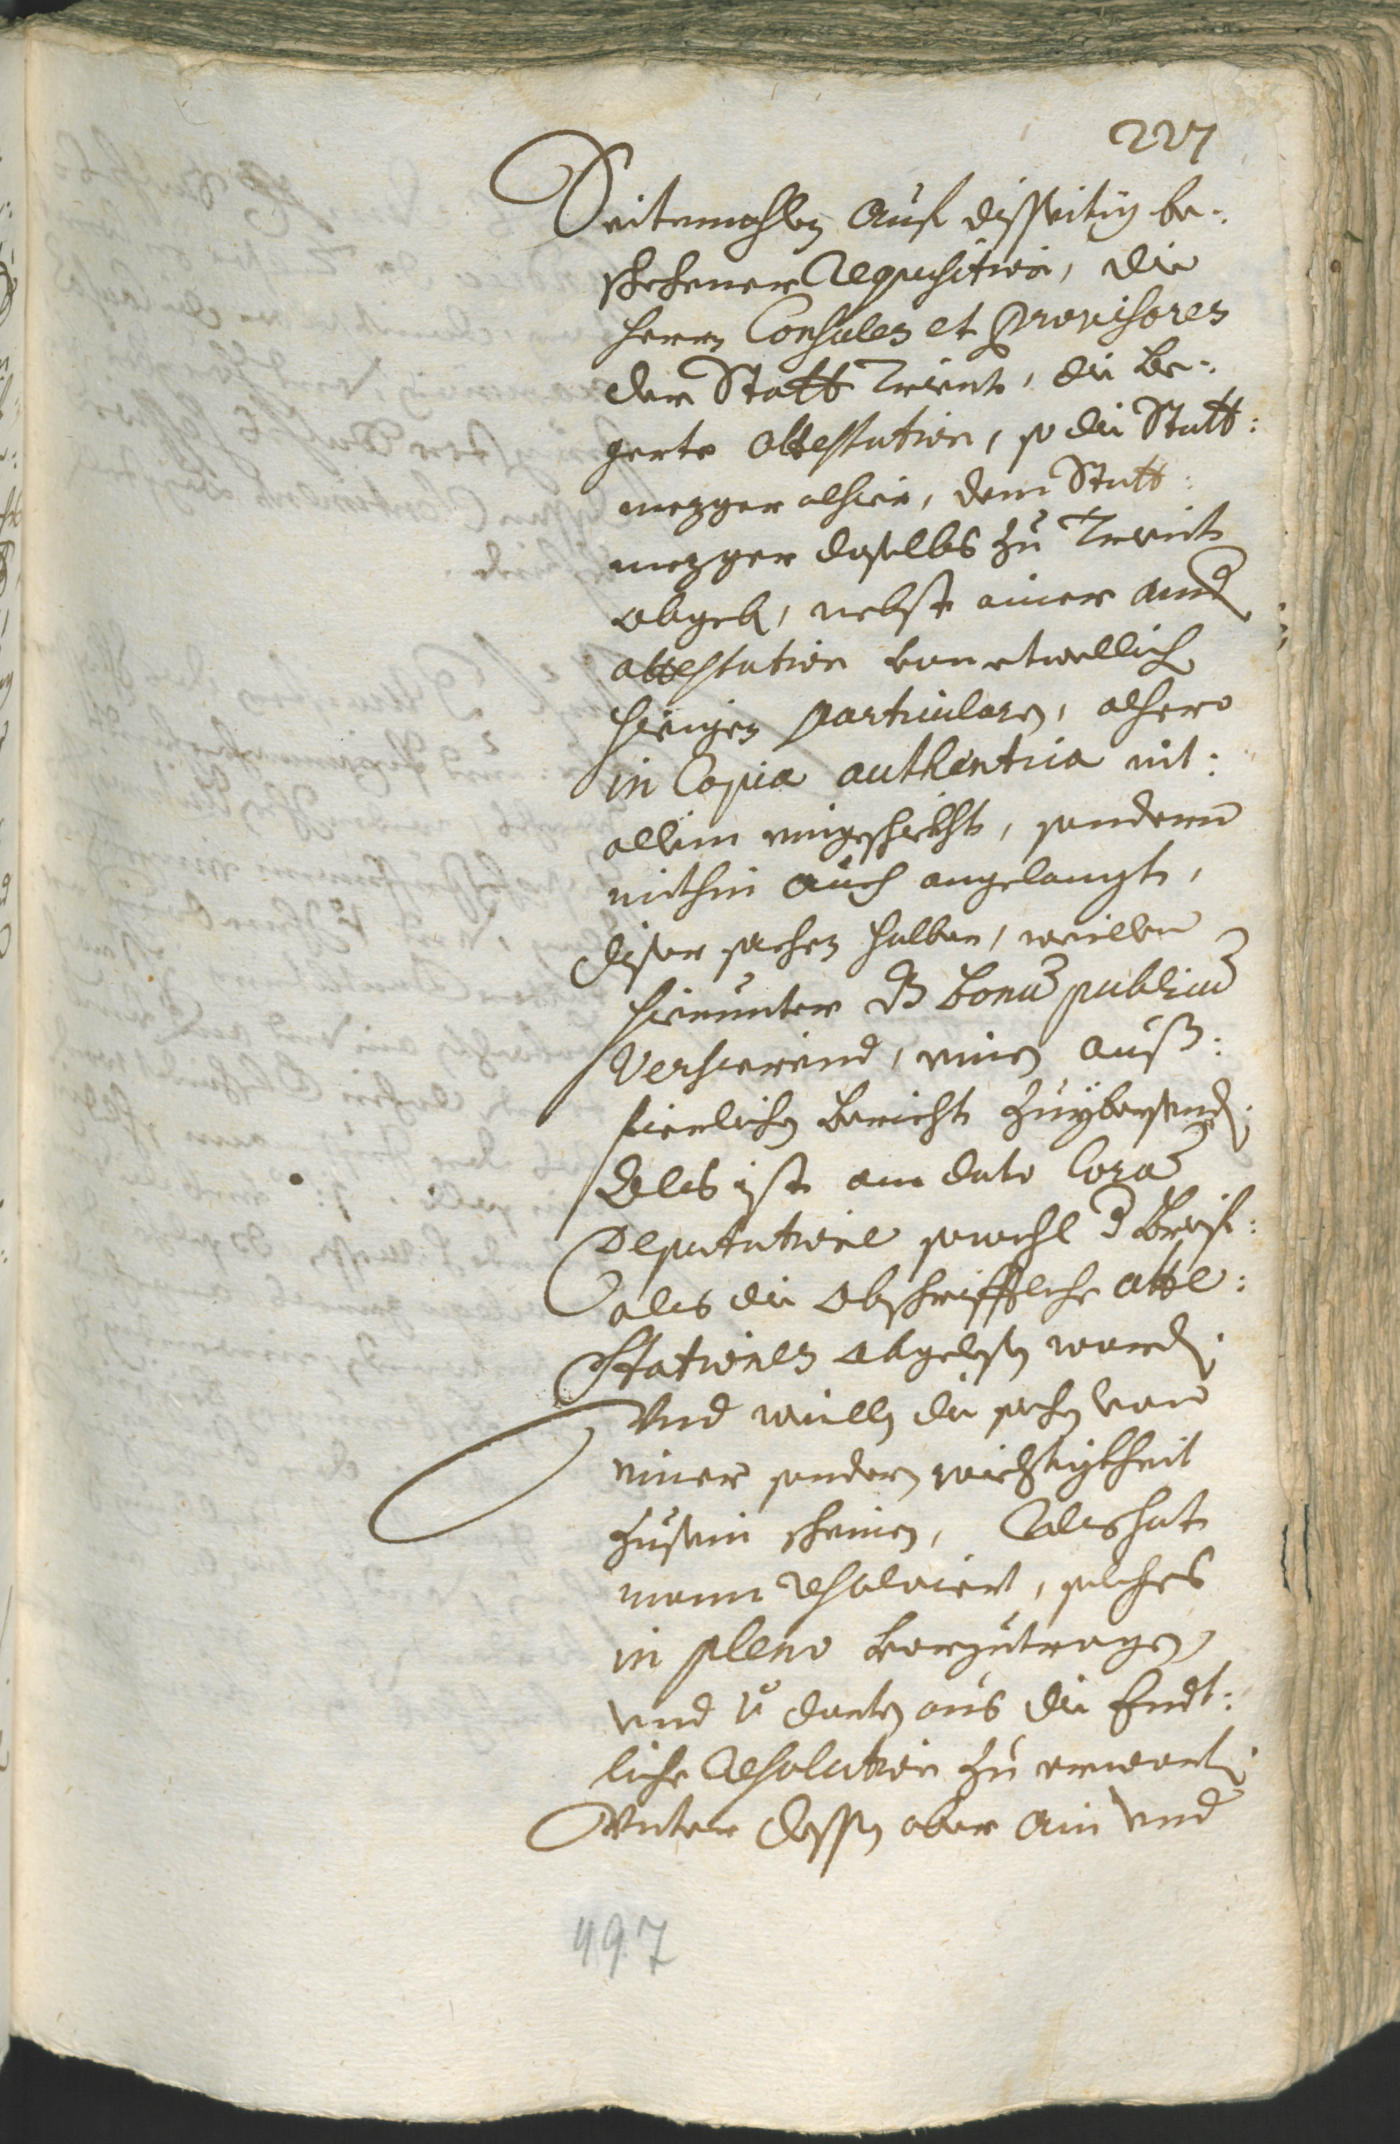 227
Seitemahlen auf disseitig be-
schehener Requisition, die
herrn Consules et Provisores
der Statt Trient, die be-
gerte attestation, so die Statt:
mezger alhier, dem Statt:
mezger daselbs zu Trient
abgeb, nebst einer and
attestation von etwellich
hiesigen particularn, alhero
in Copia authentica nit:
allein eingeschikht, sondern
mithin auch angelangt,
diser sachen halber, weillen
hierunter ds bonu publicu
versierend, einen auß:
fierlichen bericht zuybersend.
Als ist an dato Cora
Deputatione sowohl d brief:
als die abschrifftliche atte:
stationes abgelesen word.
Vnd weillen die sachen von
einer sondern wichtigkheit
zusein scheinen, Als hat
mann resolviert, solches
in pleno vorzutragen
vnd v dorten aus die Endt:
liche Resolution zu erwart.
Vnter dessen aber ain vnd
497